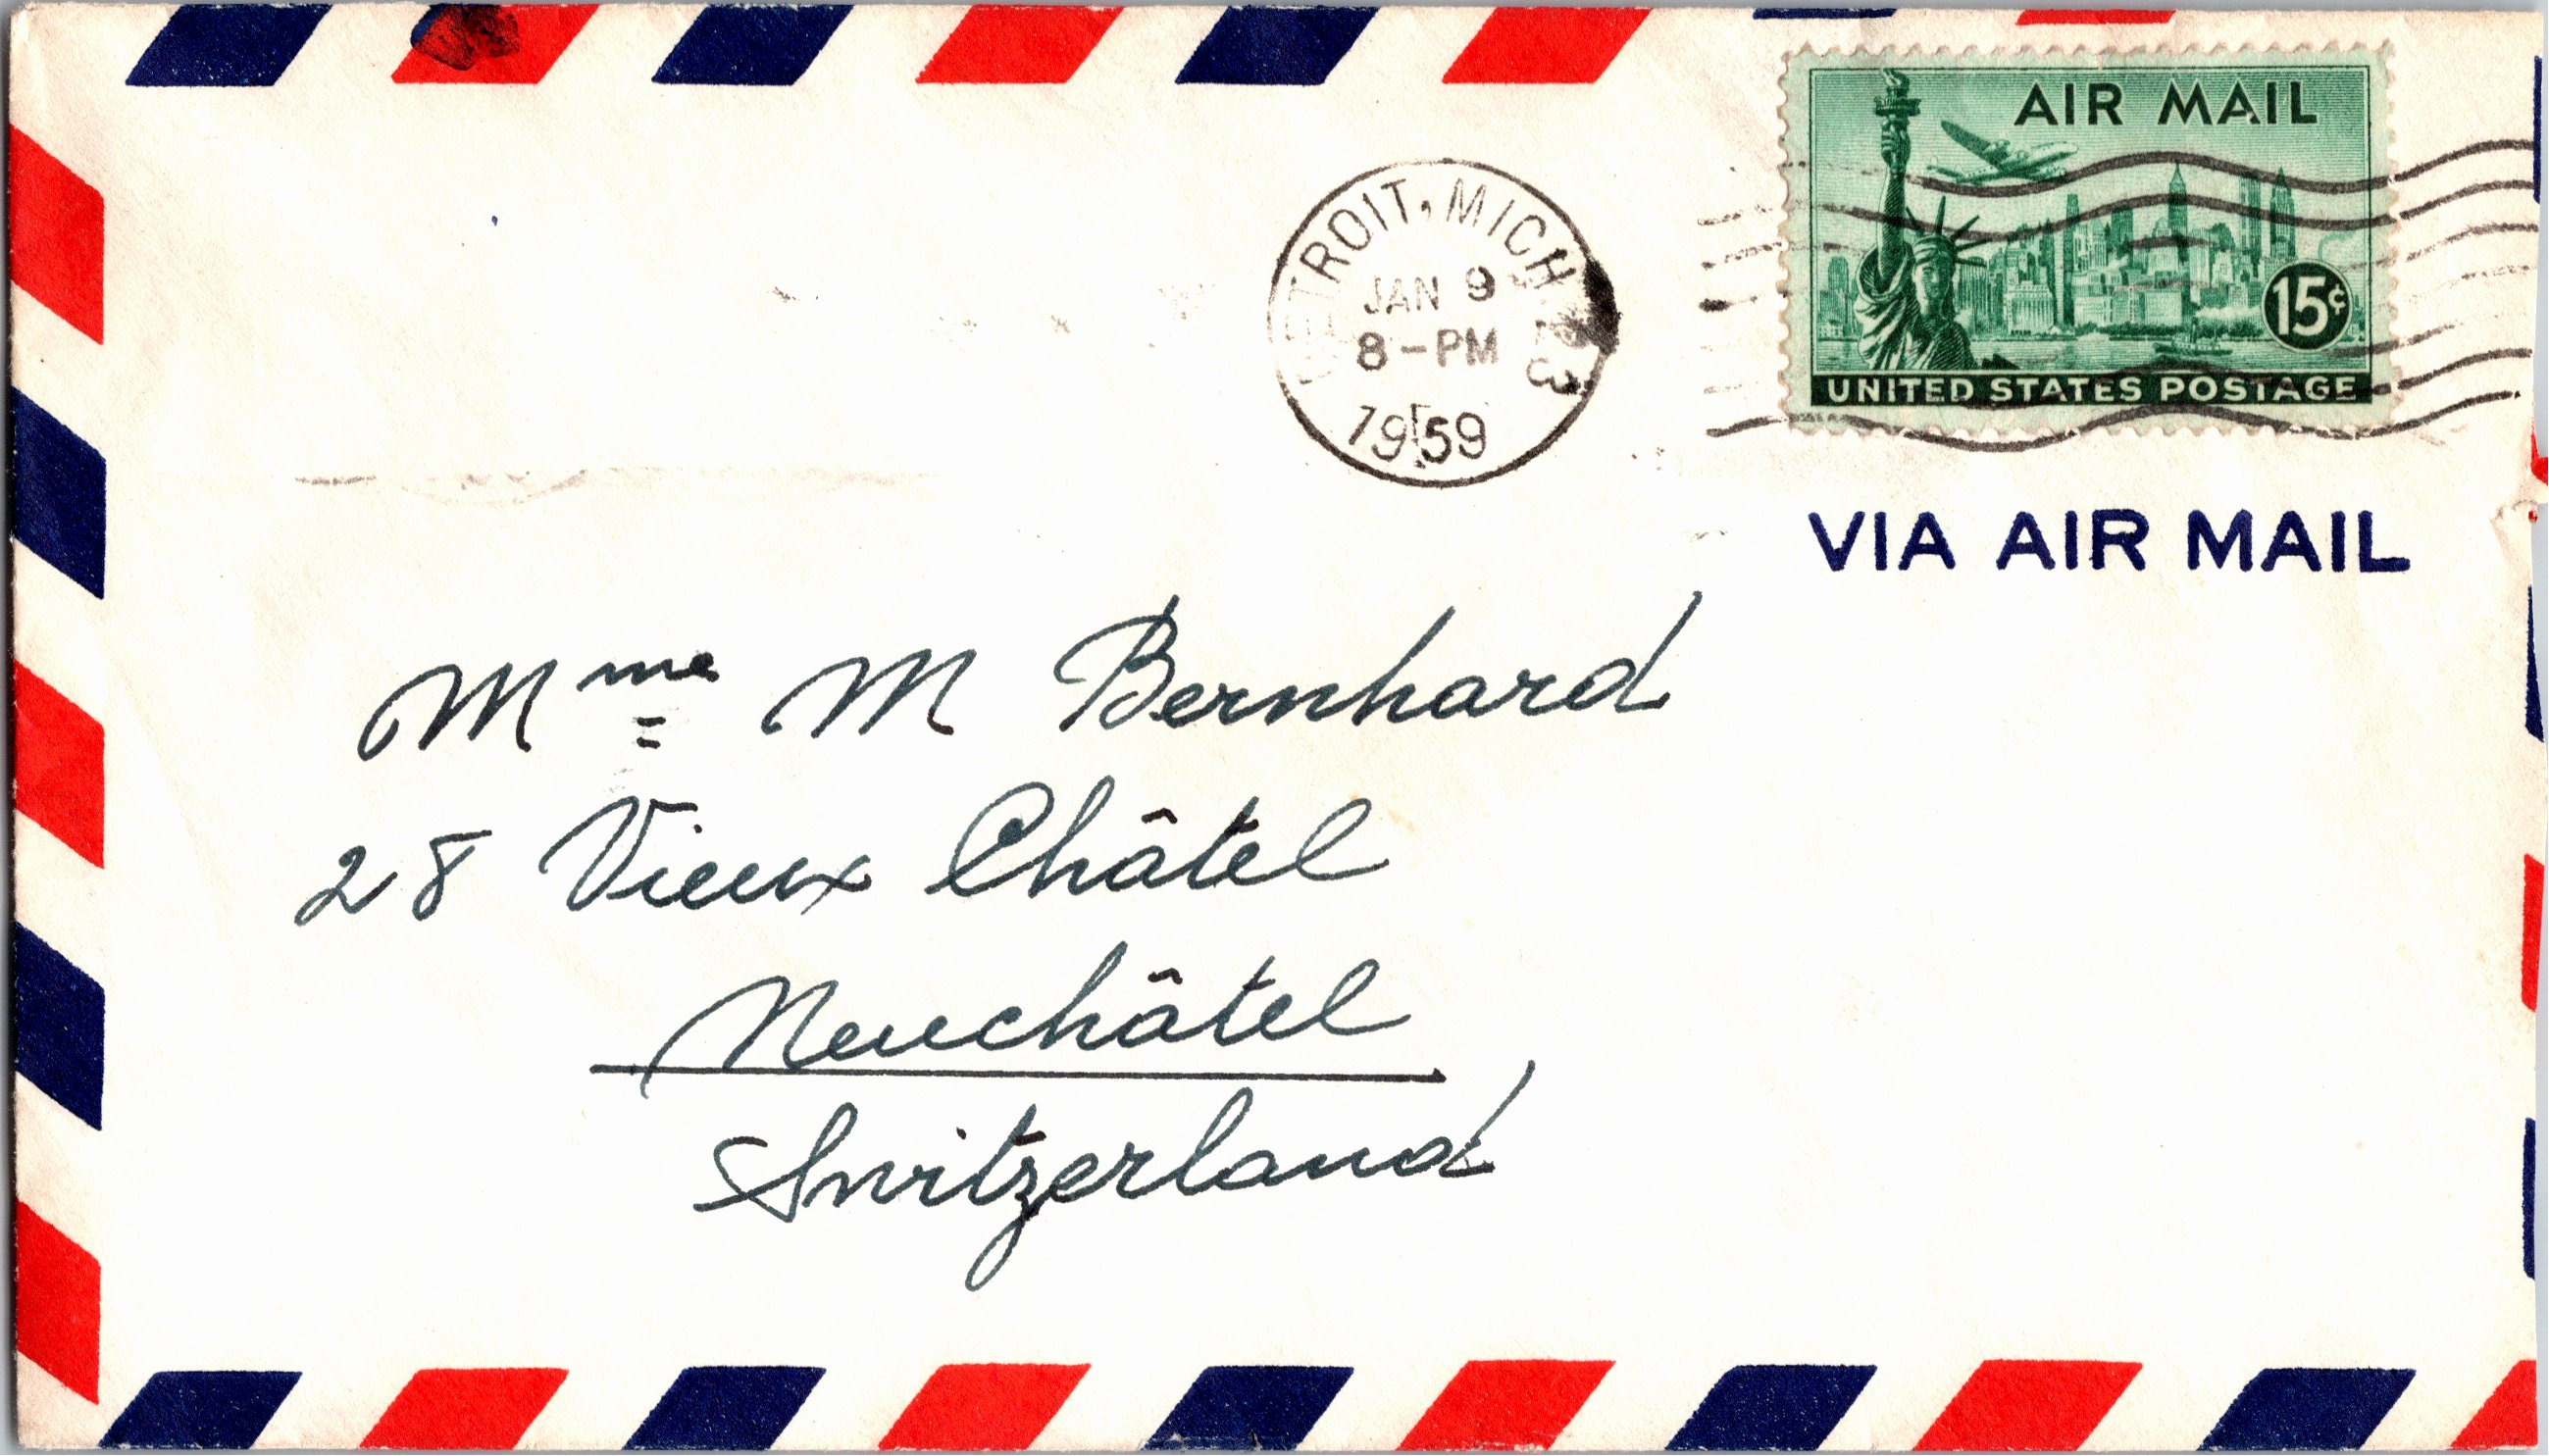 AIR MAIL
15¢
UNITED STATES POSTAGE
DETROIT, MICH
JAN 9
8-PM
1959
VIA AIR MAIL
Mme M Bernhard
28 Vieux Châtel
Neuchâtel
Switzerland